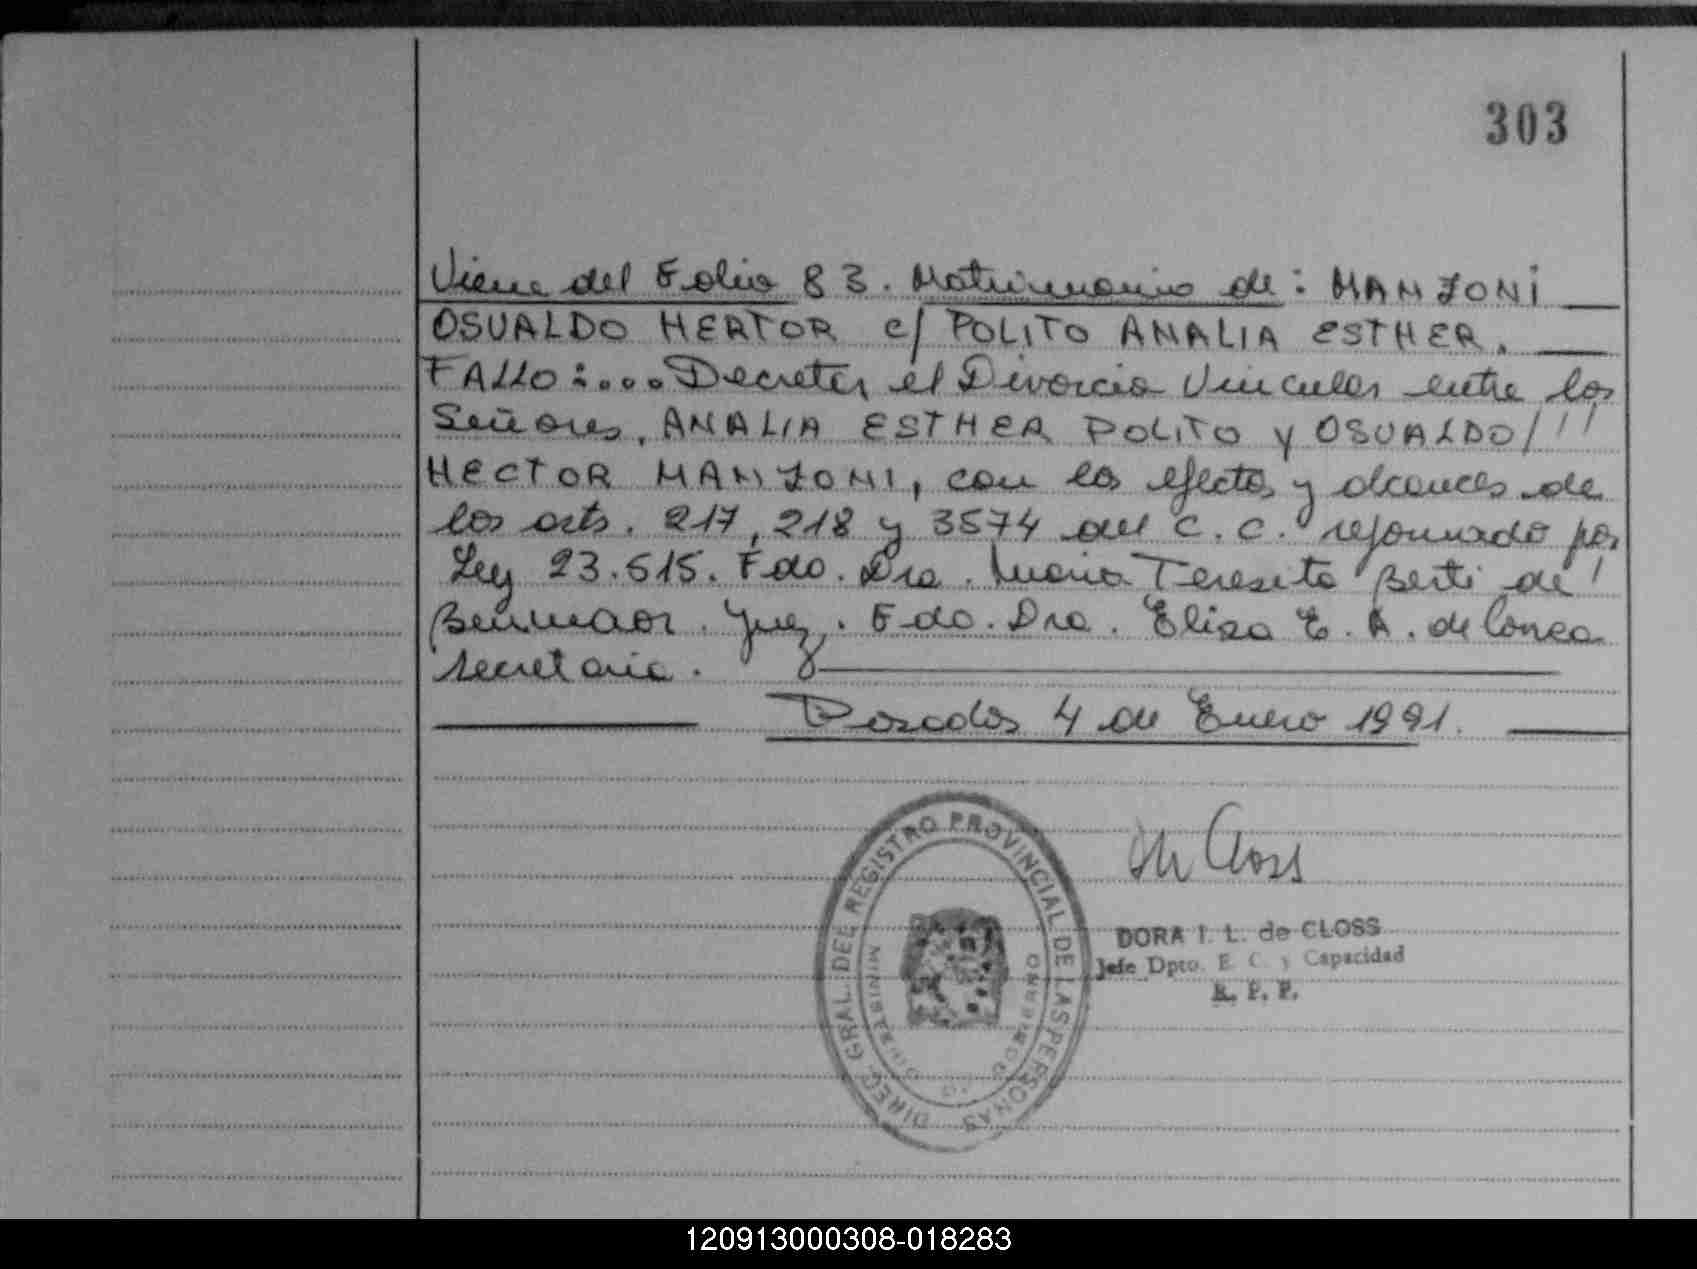 303
Viene del Folio 83. Matrimonio de: MANZONI
OSVALDO HERTOR c/ POLITO ANALIA ESTHER.
FALLO:....Decretar el Divorcio Vincular entre los
Señores, ANALIA ESTHER POLITO y OSVALDO/'''
HECTOR MANZONI, con los efectos y alcances de
los arts. 217, 218 y 3574 del C.C. reformado por
Ley 23.515. Fdo. Dra. Maria Teresita Berti de
Benmaor. Juez. Fdo. Dra. Elisa E. A. de Conea
secretaria.
Posadas 4 de Enero 1991.
M Closs
DIREC. GRAL. DEL REGISTRO PROVINCIAL DE LAS PERSONAS
MINISTERIO DE GOBIERNO
DORA I. L. de CLOSS
Jefe Dpto. E. C. y Capacidad
R. P. P.
120913000308-018283